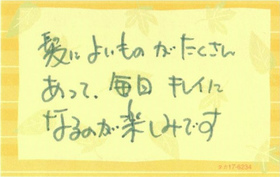 髪によいものがたくさん
あって、毎日キレイに
なるのが楽しみです